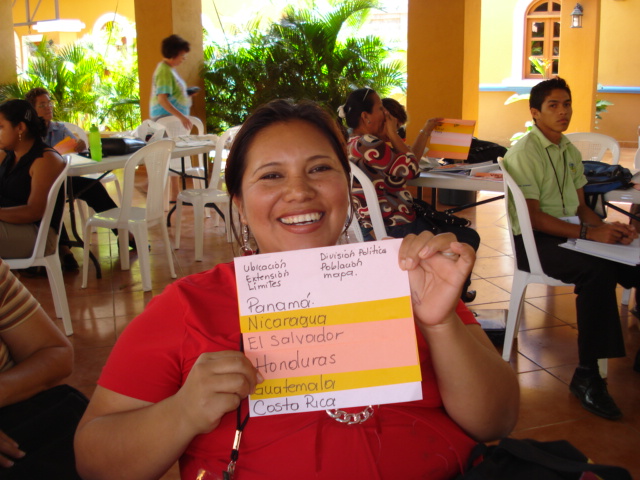 Ubicación
Extensión
Limites
División Politica
Población
mapa.
Panamá.
Nicaragua
El Salvador
Honduras
Guatemala
Costa Rica